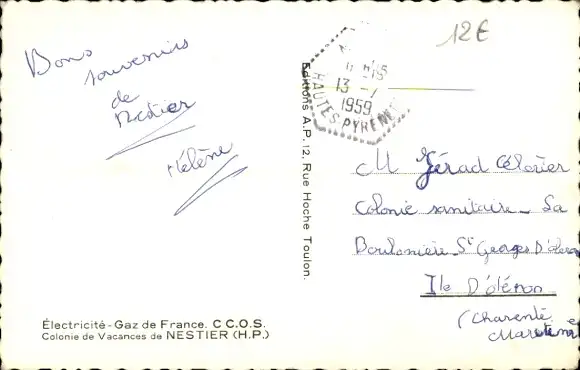 Bons
souvenirs
de
Nestier
Hélène
12€
13 - 7
1959
HAUTES-PYRÉNÉES
Editions A.P. 12, Rue Hoche Toulon.
M Gérad
Colonie sanitaire - La
Boulonière St Georges D'oléron
Ile D'oléron
(Charente
Maretime
Électricité - Gaz de France. C C.O.S.
Colonie de Vacances de NESTIER (H.P.)